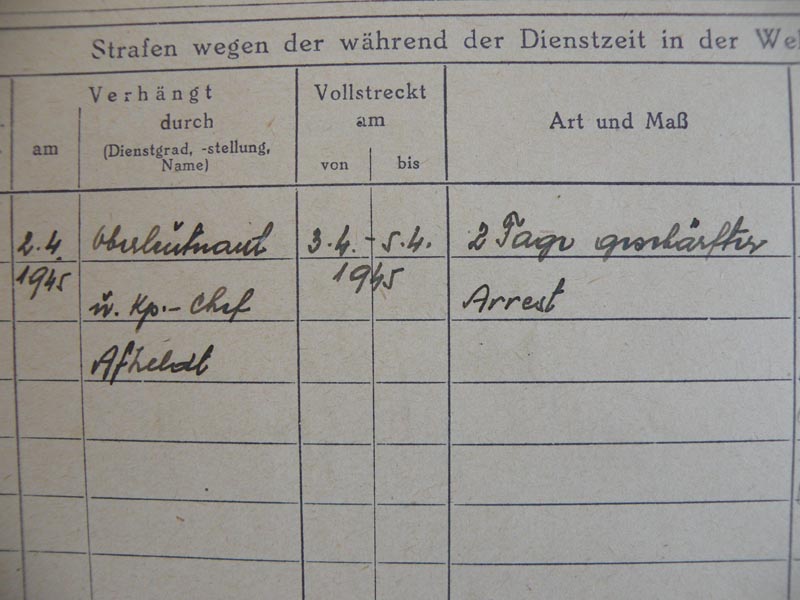 Strafen wegen der während der Dienstzeit in der We
Verhängt
Vollstreckt
durch
am
Art und Maß
am
(Dienstgrad, -stellung,
Name)
von
bis
2.4. Oberleutnant 3.4. - 5.4. 2 Tage geschärfter
1945 1945
u. Kp.- Chef Arrest
Afheldt